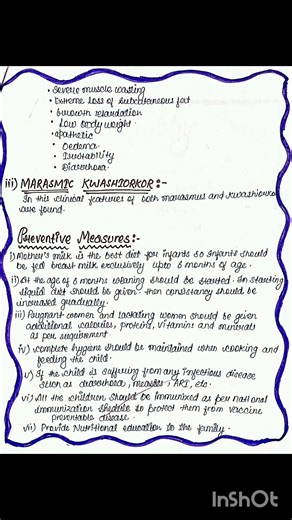 • Severe muscle wasting
• Extreme loss of subcutaneous fat
• Growth retardation
• Low body weight.
• apathetic
• Oedema
• Irritability
• Diarrhoea
iii) MARASMIC KWASHIORKOR :-
In this clinical features of both marasmus and Kwashiorkor
are found.
Preventive Measures :-
i) Mother's milk is the best diet for infants so Infants should
be fed breast milk exclusively upto 6 months of age.
ii) At the age of 6 months weaning should be started. In starting
liquid diet should be given then consistency should be
increased gradually.
iii) Pregnant women and lactating women should be given
additional calories, proteins, vitamins and minerals
as per requirement
iv) complete hygiene should be maintained when cooking and
feeding the child.
v) If the child is suffering from any infectious disease
such as diarrhoea, measles, ARI, etc.
vi) All the children should be immunized as per national
immunization shedule to protect them from vaccine
preventable disease.
vii) Provide Nutritional education to the family.
InShOt